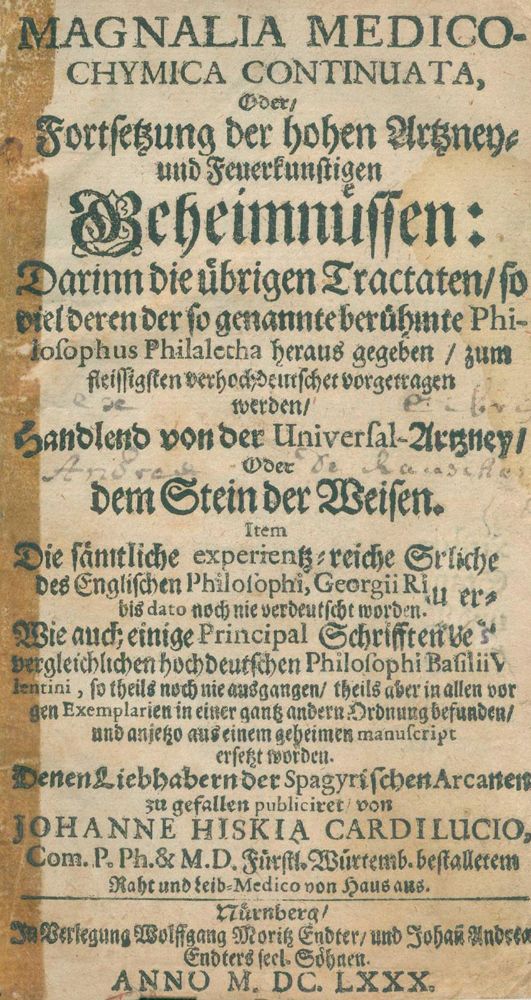 MAGNALIA MEDICO-
CHYMICA CONTINUATA,
Oder/
Fortsetzung der hohen Artzney-
und Feuerkunstigen
Geheimnuͤssen:
Darinn die übrigen Tractaten/ so
viel deren der so genannte berühmte Phi-
losophus Philaletha heraus gegeben / zum
fleissigsten verhochdeutschet vorgetragen
werden/
Handlend von der Universal-Artzney/
Oder
dem Stein der Weisen.
Item
Die sämtliche experientz-reiche
des Englischen Philosophi, Georgii
bis dato noch nie verdeutscht worden.
Wie auch; einige Principal Schrifften
vergleichlichen hochdeutschen Philosophi Basilii V
lentini, so theils noch nie ausgangen/ theils aber in allen vor
gen Exemplarien in einer gantz andern Ordnung befunden/
und anjetzo aus einem geheimen manuscript
ersetzt worden.
Denen Liebhabern der Spagyrischen Arcanen
zu gefallen publiciret/ von
JOHANNE HISKIA CARDILUCIO,
Com. P. Ph. & M. D. Fürstl. Würtemb. bestalletem
Raht und Leib-Medico von Haus aus.
Nürnberg/
In Verlegung Wolffgang Moritz Endter/ und Johañ Andrea
Endters seel. Söhnen.
ANNO M. DC. LXXX.